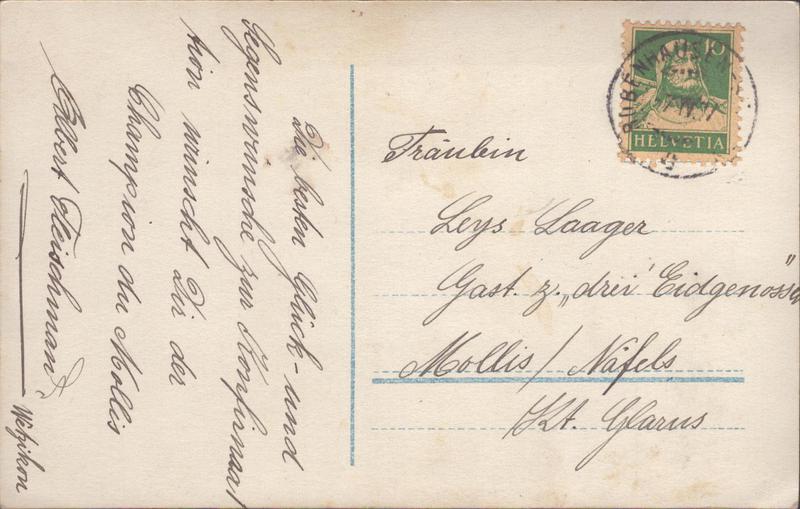 Die besten Glück- und
Segenswünsche zur Konfirmaa!
tion wünscht Dir der
Champion du Mollis
Albert Fleischmann,
Wetzikon
10
HELVETIA
ROBENHAUSEN
Fräulein
Leys Laager
Gast. z. „drei Eidgenossen"
Mollis / Näfels
Kt. Glarus